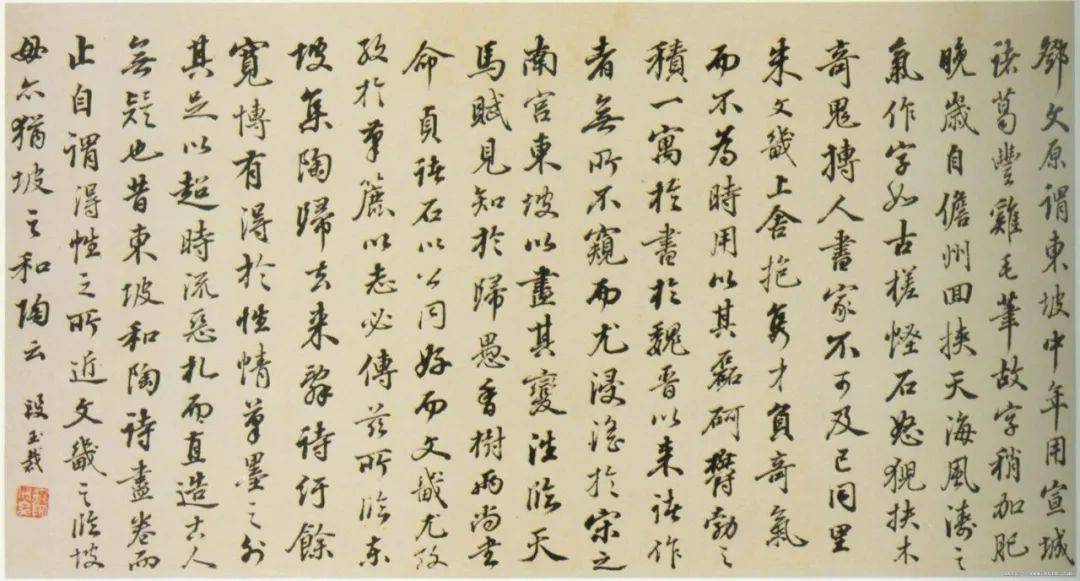 鄧文原謂東坡中年用宣城
諸葛豐雞毛筆故字稍加肥
晚歲自儋州回挾天海風濤之
氣作字如古槎怪石怒猊抉木
奇鬼搏人書家不可及已同里
朱文畿上舍抱隽才負奇氣
而不為時用以其磊砢鬱勃之
積一寓於書於魏晉以來諸作
者無所不窺而尤浸淫於宋之
南宮東坡以盡其變往臨天
馬賦見知於歸愚香樹兩尚書
命貞諸石以公同好而文畿尤孜
孜於筆簏以志必傳茲所臨東
坡集陶歸去來辭詩紆餘
寬博有得於性情筆墨之外
其足以超時流惡札而直造古人
無疑也昔東坡和陶詩盡卷而
止自謂得性之所近文畿之臨坡
毋亦猶坡之和陶云 段玉裁